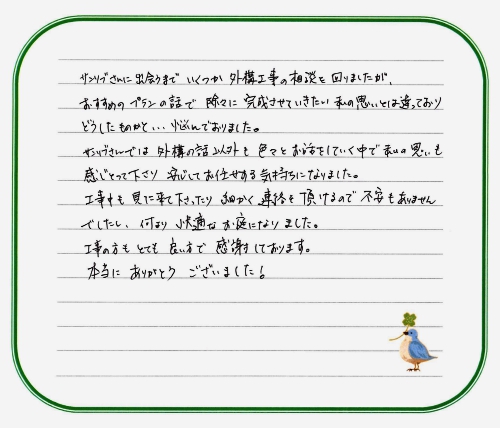 サンリブさんに出会うまで いくつか 外構工事の相談を 回りましたが、
おすすめの プランの話で 除々に 完成させていきたい 私の思いとは違っており
どうしたものかと… 悩んでおりました。
サンリブさんでは 外構の話以外も 色々とお話をしていく中で 私の思いも
感じとって下さり 安心してお任せする気持ちになりました。
工事中も 見に来て下さったり 細かく 連絡を 頂けるので 不安もありません
でしたし、何より 快適な お庭になりました。
工事の方も とても 良い方で 感謝しております。
本当に ありがとう ございました!